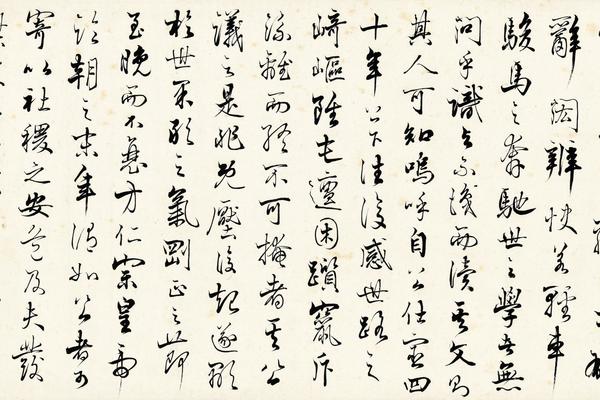 辭閎辯快若輕車
駿馬之奔馳世之學者無
問乎識與不識而讀其文則
其人可知嗚呼自公仕宦四
十年上下往復感世路之
崎嶇雖屯邅困躓竄斥
流離而終不可掩者其公
議之是非既壓復起遂顯
於世果敢之氣剛正之節
至晚而不衰方仁宗皇帝
臨朝之末年謂如公者可
寄以社稷之安危及夫發